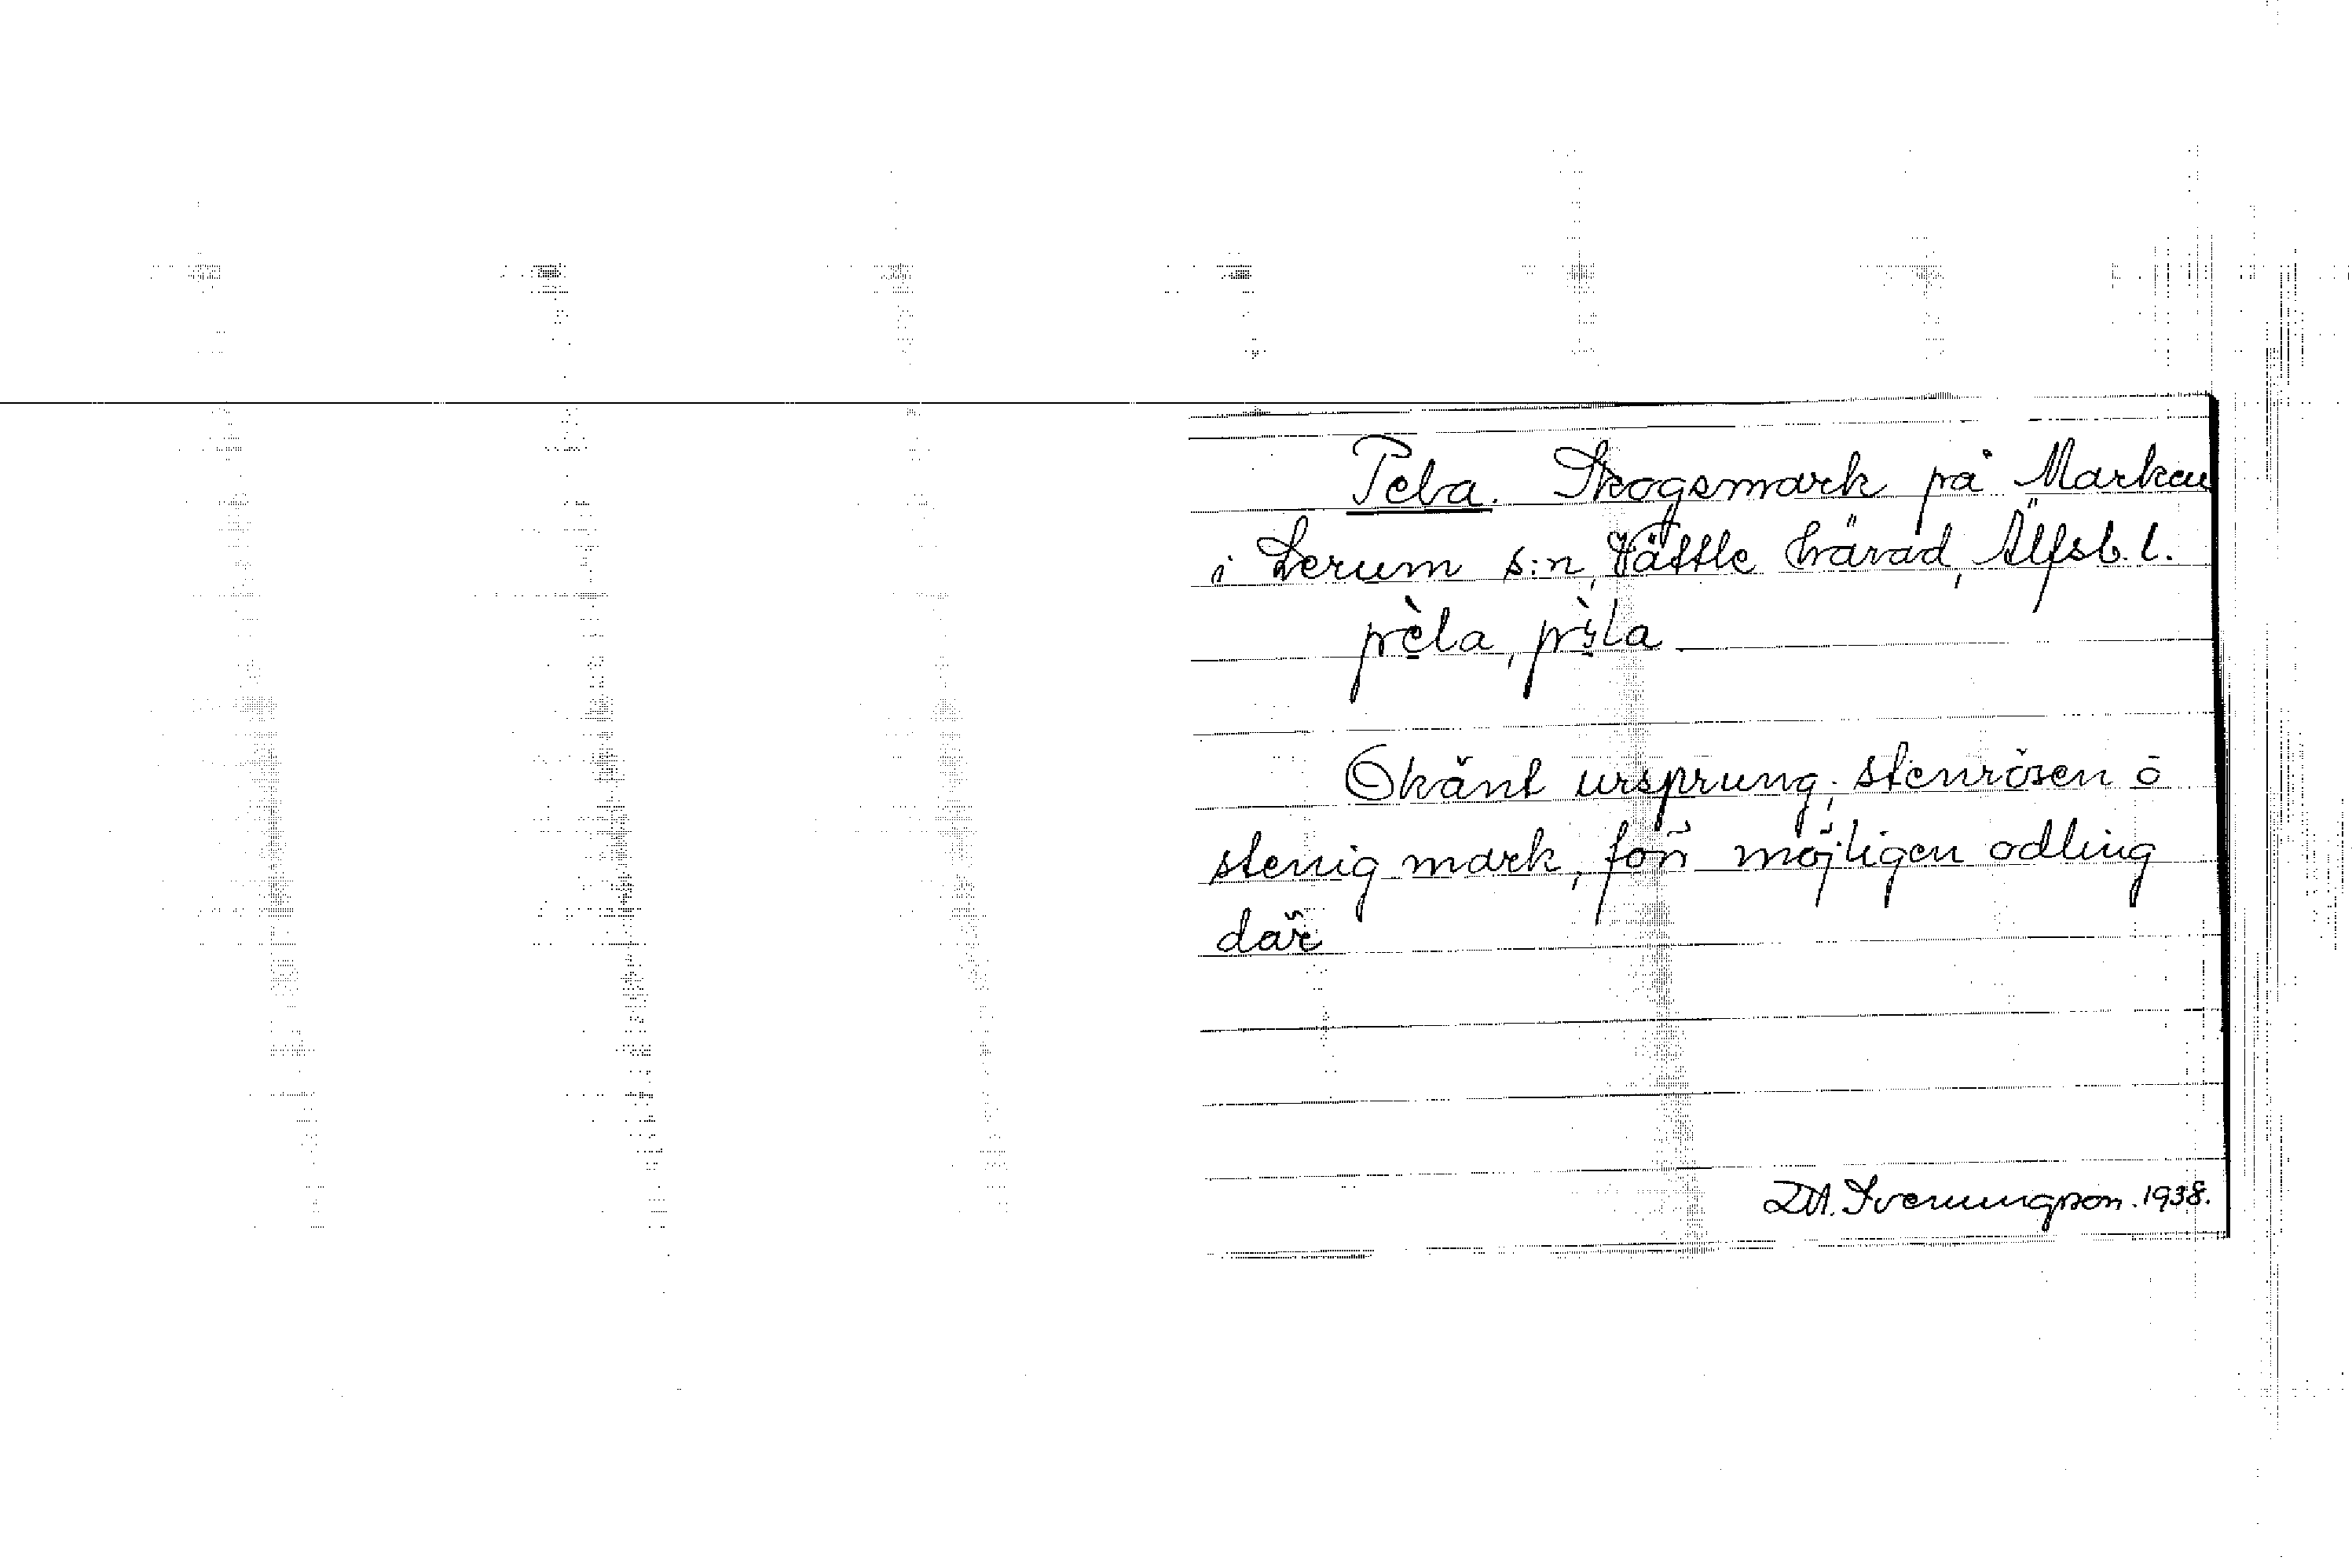 Pela. Skogsmark på Marken
i Lerum s:n, Vättle härad, Älfsb. l.
pèla, pỳla
Okänt ursprung; stenrösen o
stenig mark, förr möjligen odling
där
D.A. Sverungson. 1938.